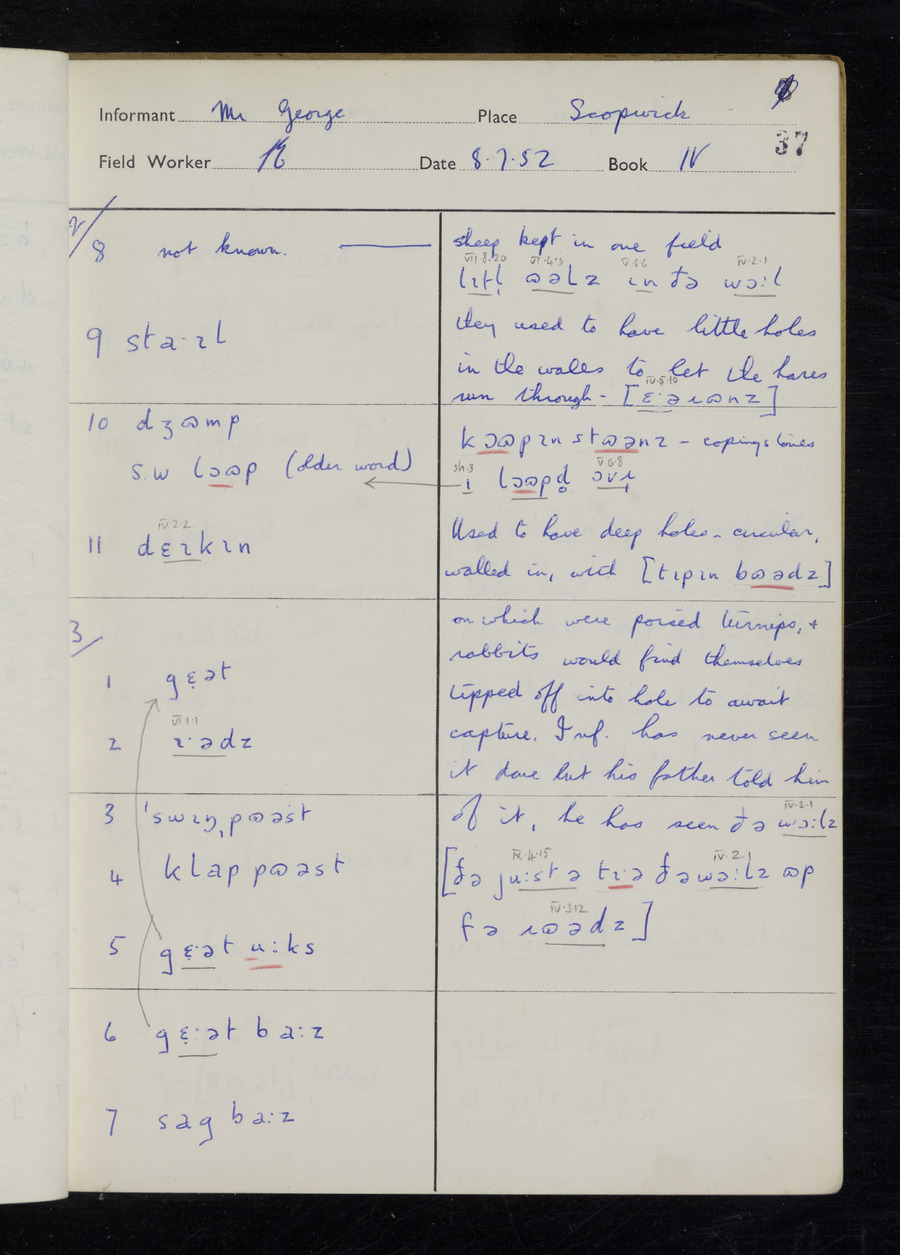 Informant Mr George Place Scopwick
37
Field Worker Date 8.7.52 Book IV
2/
8 not known.
9 sta·ɪl
10 dʒɷmp
s.w lɔɷp (older word)
IV.2.2
11 dɛɪkɪn
3/
1 gɛ̣ət
VI.1.1
2 ɪ·ədz
3 ˈswɪŋˌpɷəst
4 klap pɷəst
5 gɛ̣·ət u:ks
6 gɛ̣·ət ba:z
7 sag ba:z
sheep kept in one field
VII.8.20 VI.4.3 V.6.6 IV.2.1
lɪtl̩ ɷəlz ɪn ðə wɔ:l
they used to have little holes
in the walls to let the hares
IV.5.10
run through - [ɛ̣·əɹɷnz]
kɔɷpɪn stɷənz - coping stones
sh.3 V.6.8
i lɔɷpd̥ ɔvɹ̩
Used to have deep holes - circular,
walled in, with [tɪpɪn bɷədz]
on which were poised turnips, +
rabbits would find themselves
tipped off into hole to await
capture. Inf. has never seen
it done but his father told him
IV.2.1
of it, he has seen ðə wɔ:lz
IX.4.15 IV.2.1
[ðə ju:stə tɪə ðə wɔ:lz ɷp
IV.3.12
fə ɹɷədz]